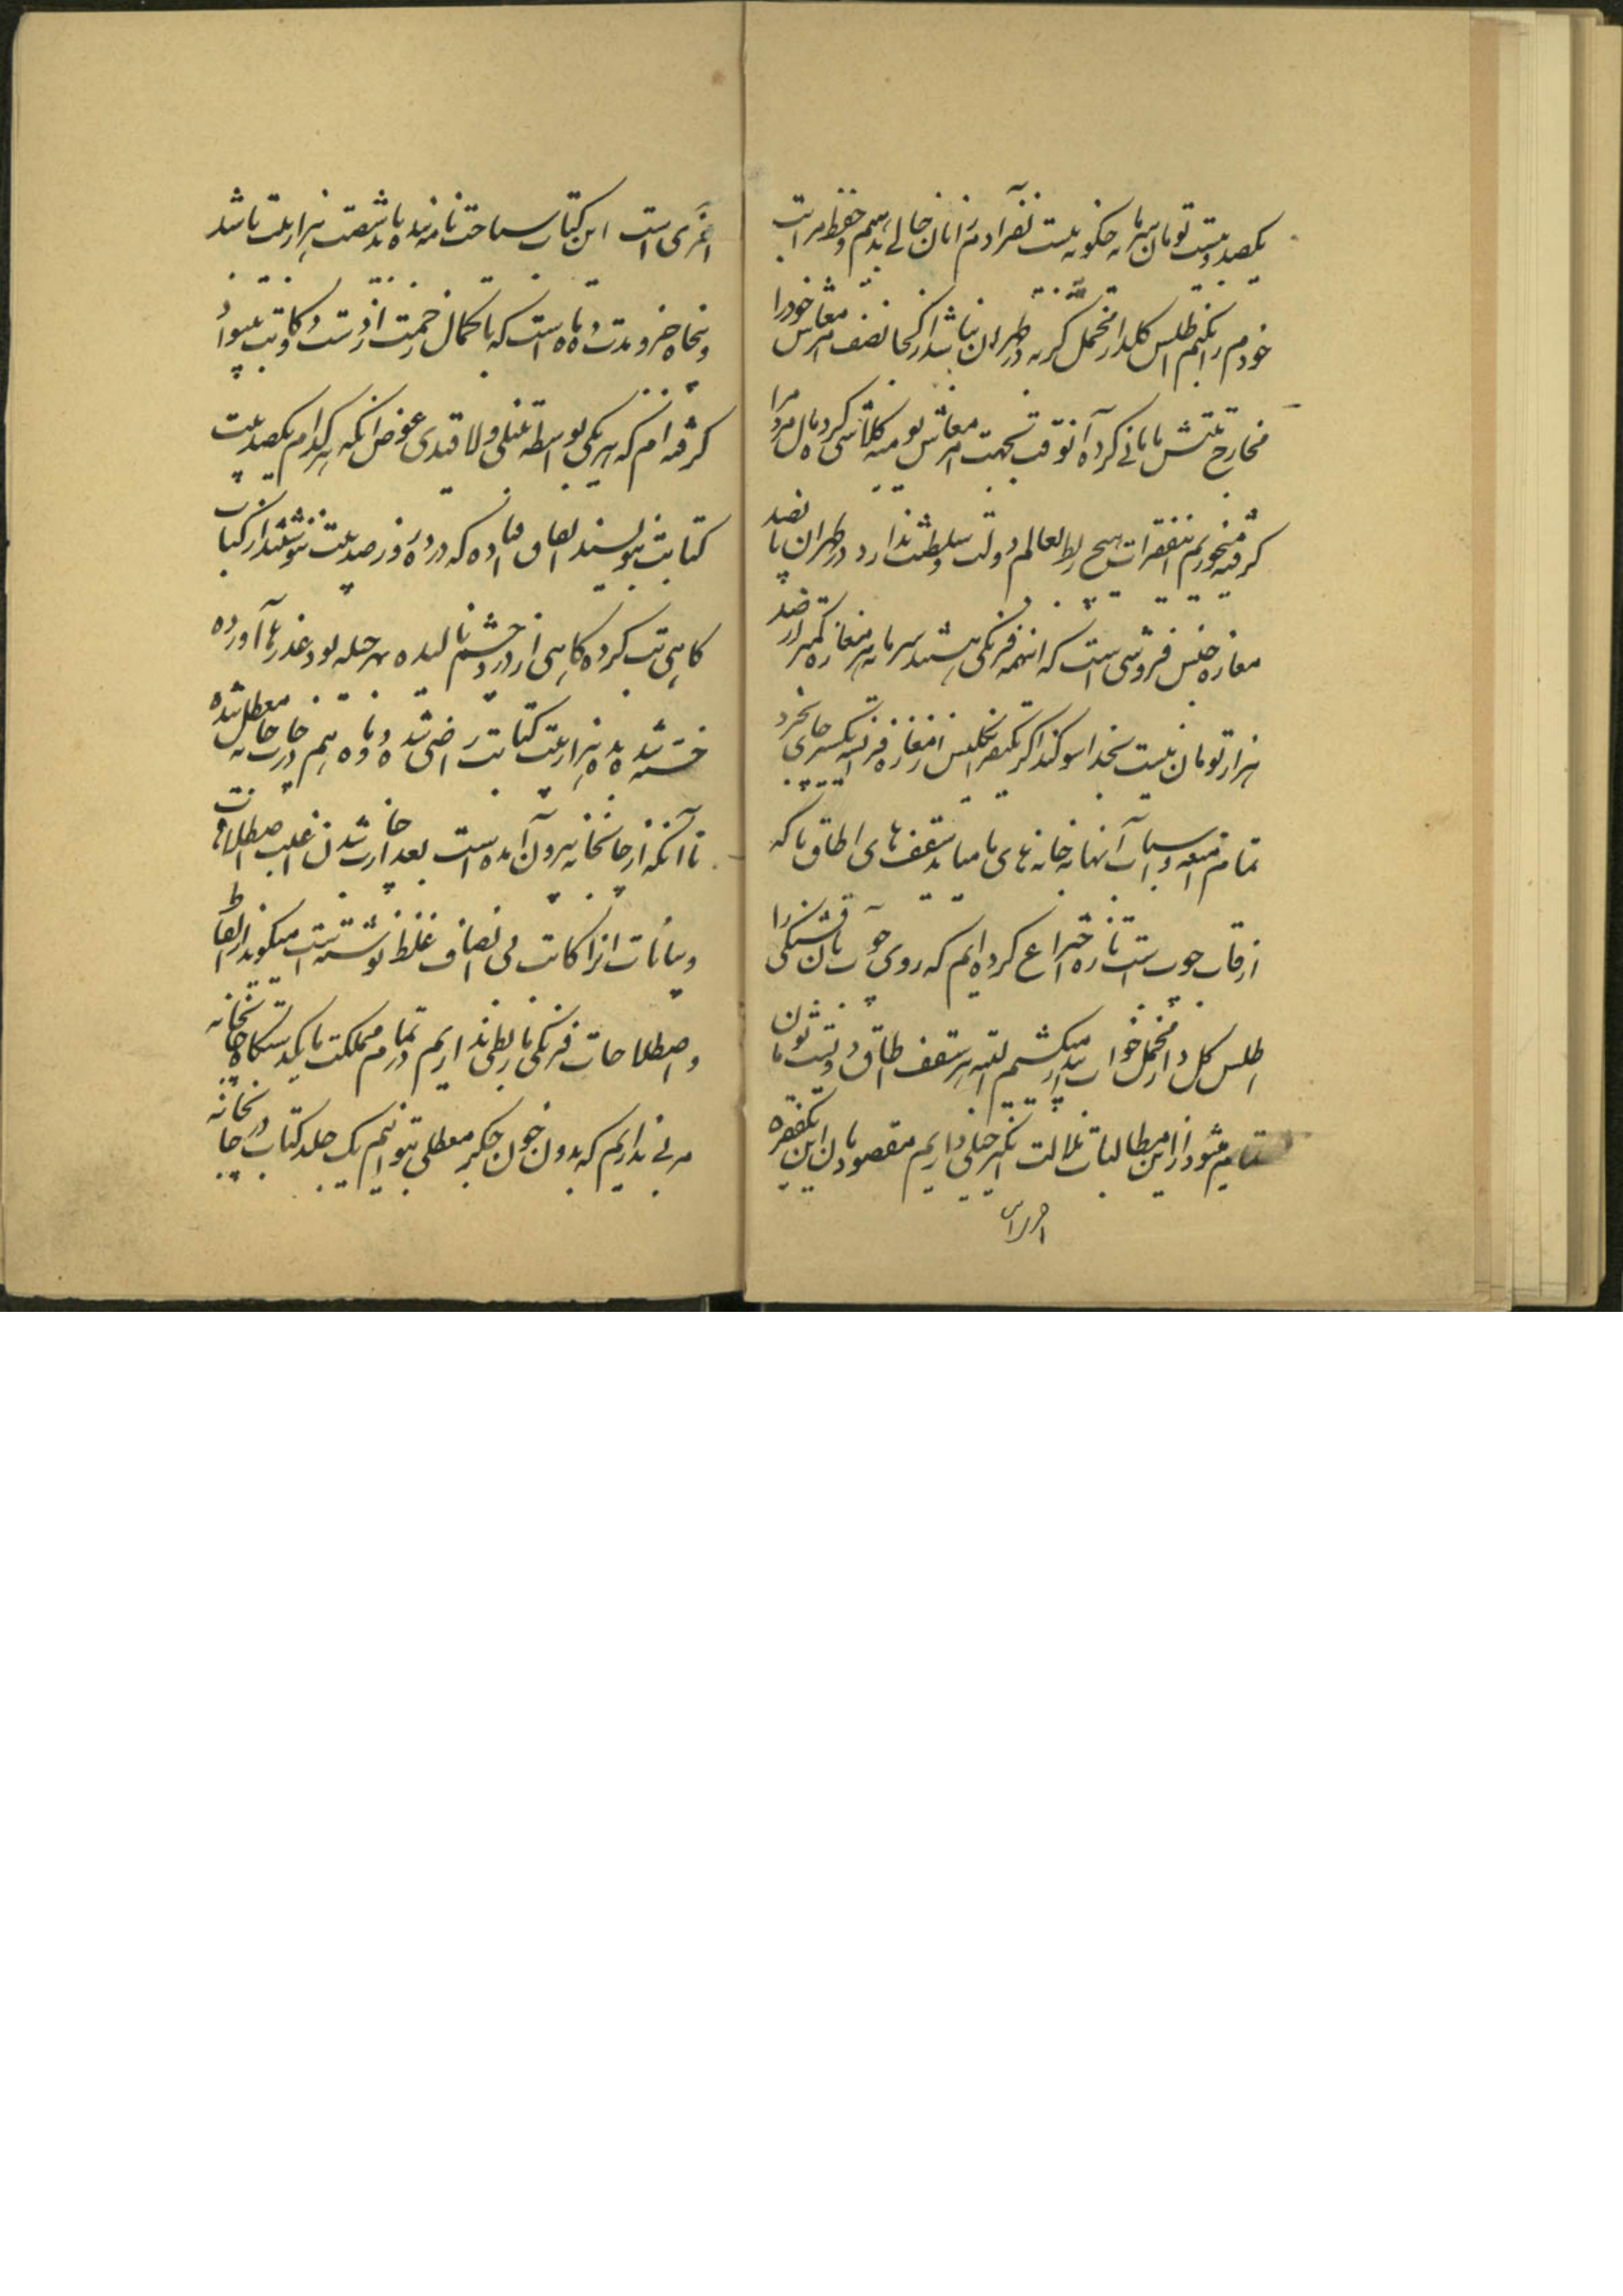 یکصد و بیست تومان سرمایه چگونه بیست نفر آدم را نان خالی بدهم و حفظ مراتب
خودم را بکنم اطلس گلدار مخمل گربه در طهران نباشد از کجا نصف معاش خود را
مخارج عشش بابانی کرده آنوقت بجهت امر معاش یومیه کلاشی کرده مال مردم را
گرفته میخوریم اینفقرات هیچ ربط بعالم دولت و سلطنت ندارد در طهران پانصد
مغازه جنس فروشی است که اینهمه فرنگی هستند سرمایه هر مغازه کمتر از صد
هزار تومان نیست بخدا سوگند اگر یکنفر انگلیس از مغازه فرانسه یکسر چای بخرد
تمام امتعه و اسباب آنها به خانه‌های ما میاید سقف‌های اطاق ما که
از قاب چوب است تازه اختراع کرده‌ایم که روی چوب بآن قشنگی را
اطلس گل‌دار مخمل خوابیده میکشیم البته هر سقف اطاق دویست تومان
تمام میشود از این مطالبات ملالت انگیز خیلی داریم مقصود ما بدون این یکفقره
اجرای است این کتاب سیاحت نامه بنده باید شصت هزار بیت باشد
و پنجاه جزو مدت دو ماه است که با کمال زحمت از رشت دو کاتب بیسواد
گرفته‌ام که هر یکی بواسطه تنبلی و لاقیدی عوض آنکه هر کدام یکصد بیت
کتابت بنویسند اتفاق افتاده که در ده روز صد بیت ننوشته‌اند از کتاب
گاهی تب کرده گاهی از درد چشم نالیده بهر حیله بود عذرها آورده
خسته شد به ده هزار بیت کتابت راضی شده دو ماه هم در چاپخانه معطل شده
تا آنکه از چاپخانه بیرون آمده است بعد از چاپ شدن اغلب اصطلاحات
و بیانات را کاتب بی‌انصاف غلط نوشته است میگوید از الفاظ
و اصطلاحات فرنگی ما ربطی نداریم در تمام مملکت ما یکدستگاه چاپخانه
مرتبی نداریم که بدون خون جگر معطلی بتوانیم یک جلد کتاب در چاپخانه